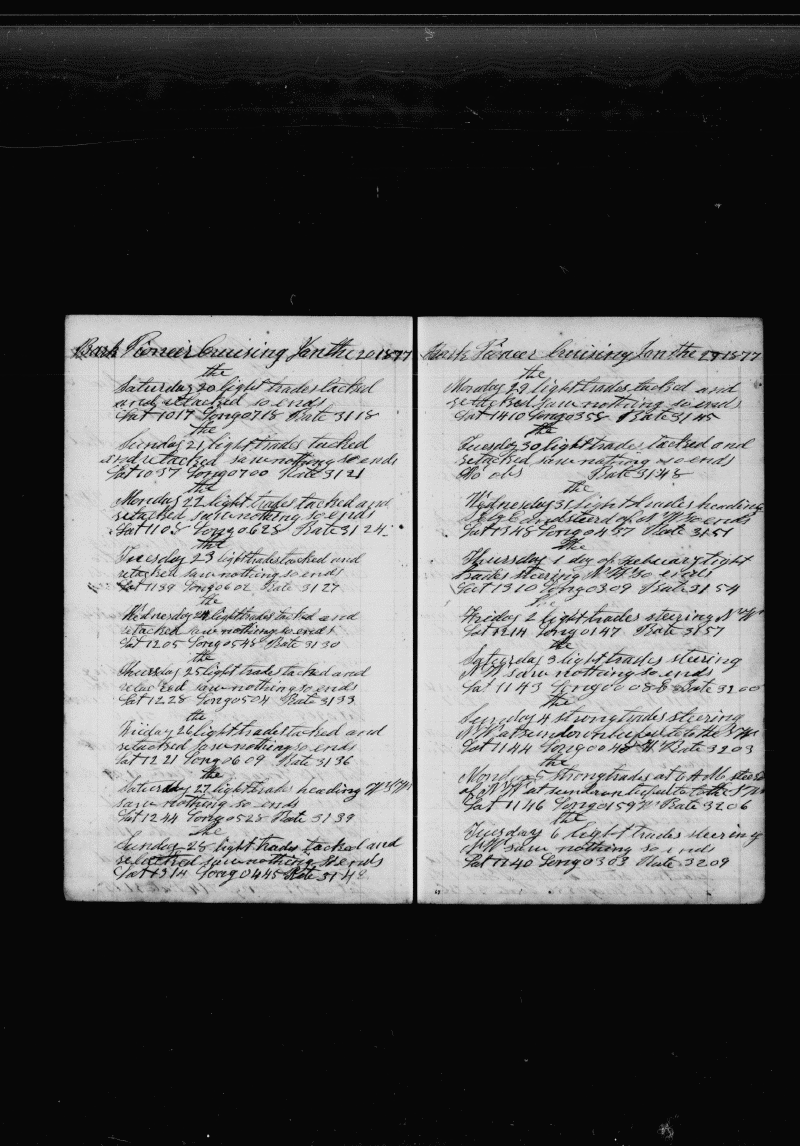 Bark Pioneer Cruising Jan the 20 1877
the
Saturday 20 light trades tacked
and retacked so ends
Lat 1017 Long 0718 Rate 3118
the
Sunday 21 light trades tacked
and retacked saw nothing so ends
Lat 1037 Long 0700 Rate 3121
the
Monday 22 light trades tacked and
retacked saw nothing so ends
Lat 1108 Long 0628 Rate 3124
the
Tuesday 23 light trades tacked and
retacked saw nothing so ends
Lat 1139 Long 0602 Rate 3127
the
Wednesday 24 light trades tacked and
retacked saw nothing so ends
Lat 1205 Long 0548 Rate 3130
the
Thursday 25 light trades tacked and
retacked saw nothing so ends
Lat 1228 Long 0504 Rate 3133
the
Friday 26 light trades tacked and
retacked saw nothing so ends
Lat 1221 Long 0609 Rate 3136
the
Saturday 27 light trades heading
saw nothing so ends
Lat 1244 Long 0528 Rate 3139
the
Sunday 28 light trades tacked and
retacked saw nothing so ends
Lat 1314 Long 0445 Rate 3142
Bark Pioneer Cruising Jan the 29 1877
the
Monday 29 light trades tacked and
retacked saw nothing so ends
Lat 1410 Long 0358 Rate 3145
the
Tuesday 30 light trades tacked and
retacked saw nothing so ends
No obs Rate 3148
the
Wednesday 31 light trades heading
so ends
Lat 1348 Long 0437 Rate 3151
the
Thursday 1 day of February light
trades steering N W so ends
Lat 1310 Long 0309 Rate 3154
the
Friday 2 light trades steering N W
Lat 1214 Long 0147 Rate 3157
the
Saturday 3 light trades steering
N W saw nothing so ends
Lat 1143 Long 00 08 E Rate 3200
the
Sunday 4 strong trades steering
N W at sundown luffed to to the S W
Lat 1144 Long 0048 W Rate 3203
the
Monday 5 strong trades at 6 A M steered
of N W at sundown luffed to to the S W
Lat 1146 Long 0159 W Rate 3206
the
Tuesday 6 light trades steering
N W saw nothing so ends
Lat 1140 Long 0303 Rate 3209